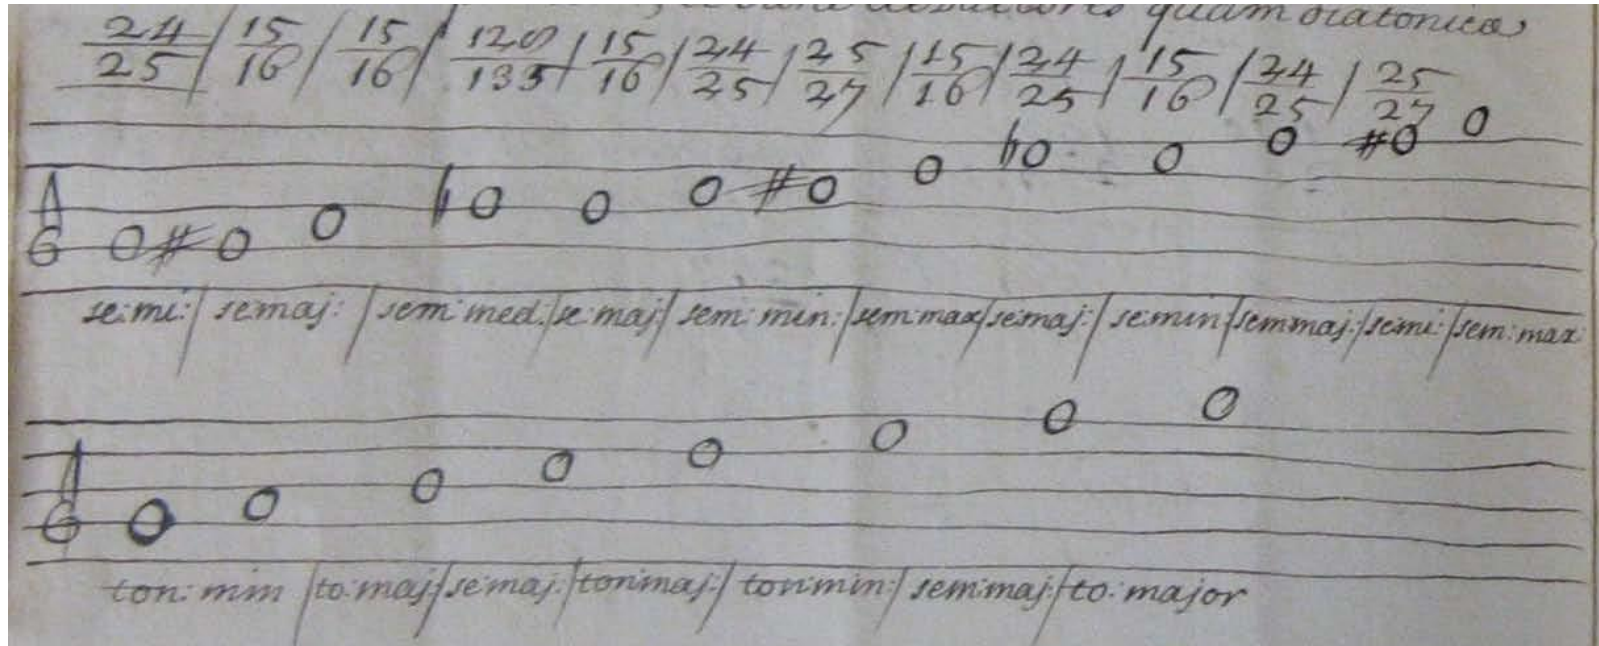 quam diatonica
24/25 / 15/16 / 15/16 / 128/135 / 15/16 / 24/25 / 25/27 / 15/16 / 24/25 / 15/16 / 24/25 / 25/27
se: mi: / se maj: / sem med. / se maj / sem: min: / sem max / se: maj: / se: min / sem maj: / se: mi: / sem: max:
ton: min / to: maj / se: maj: / ton: maj: / ton: min: / sem: maj: / to: major